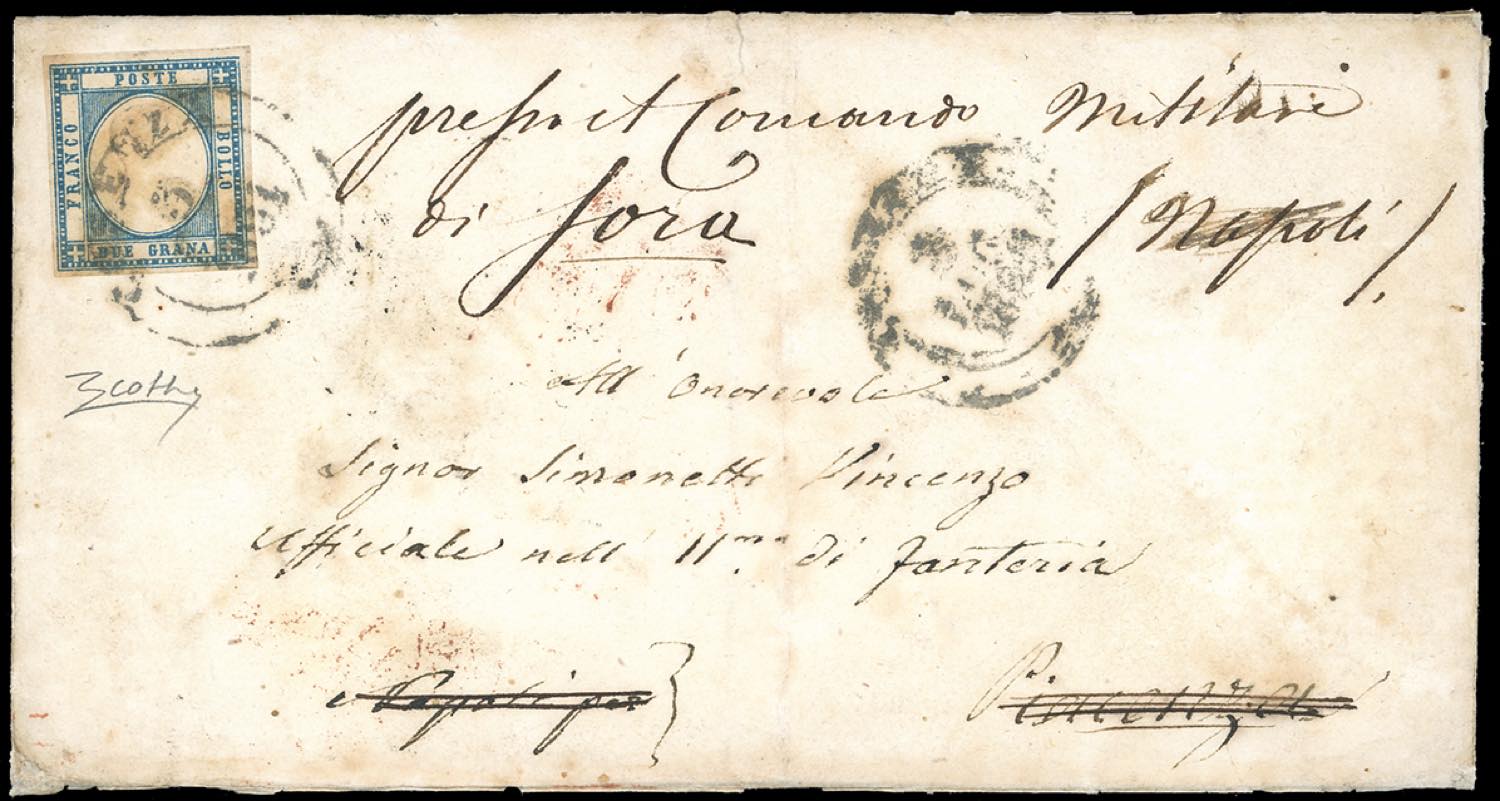 POSTE
FRANCO
BOLLO
DUE GRANA
presso il Comando Militare
di Sora (Napoli).
All' Onorevole
Signor Simonetti Vincenzo
Ufficiale nell' 11mo di fanteria
Napoli per
Piacenza